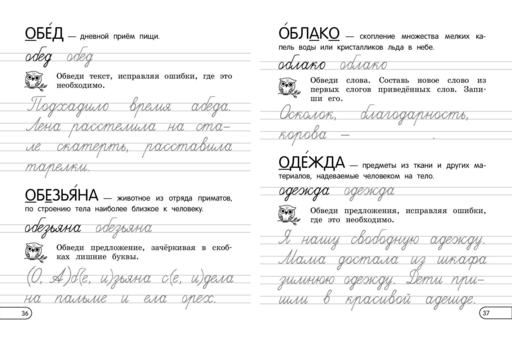 ОБЕ́Д — дневной приём пищи.
обед обед
Обведи текст, исправляя ошибки, где это
необходимо.
Подхадило время абеда.
Лена расстелила на ста-
ле скатерть, расставила
тарелки.
ОБЕЗЬЯ́НА — животное из отряда приматов,
по строению тела наиболее близкое к человеку.
обезьяна обезьяна
Обведи предложение, зачёркивая в скоб-
ках лишние буквы.
(О, А)б(е, и)зьяна с(е, и)дела
на пальме и ела орех.
36
О́БЛАКО — скопление множества мелких ка-
пель воды или кристалликов льда в небе.
облако облако
Обведи слова. Составь новое слово из
первых слогов приведённых слов. Запи-
ши его.
Осколок, благодарность,
корова — .
ОДЕ́ЖДА — предметы из ткани и других ма-
териалов, надеваемые человеком на тело.
одежда одежда
Обведи предложения, исправляя ошибки,
где это необходимо.
Я нашу свободную адежду.
Мама достала из шкафа
зимнюю одежду. Дети при-
шли в красивой адешде.
37